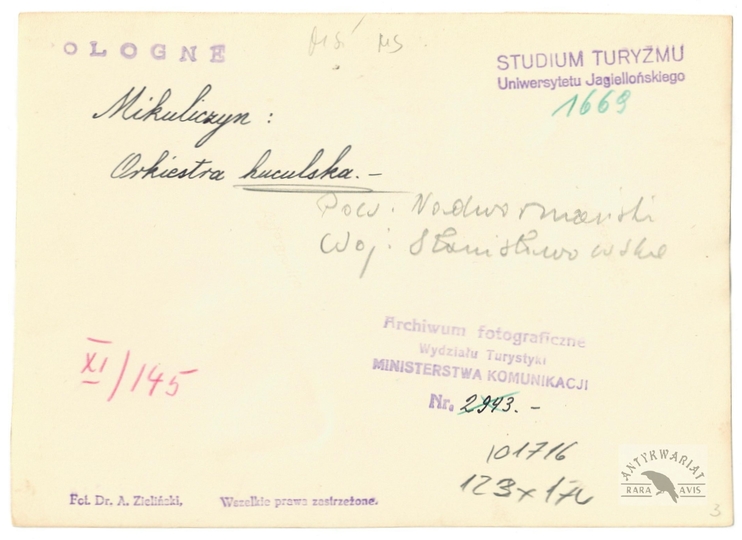 OLOGNE
STUDIUM TURYZMU
Uniwersytetu Jagiellońskiego
1669
Mikuliczyn:
Orkiestra huculska.-
Pow. Nadwórniański
Woj. Stanisławowskie
Archiwum fotograficzne
Wydziału Turystyki
MINISTERSTWA KOMUNIKACJI
Nr. 2943.-
XI/145
101716
Fot. Dr. A. Zieliński,
Wszelkie prawa zastrzeżone.
ANTYKWARIAT
RARA AVIS
3